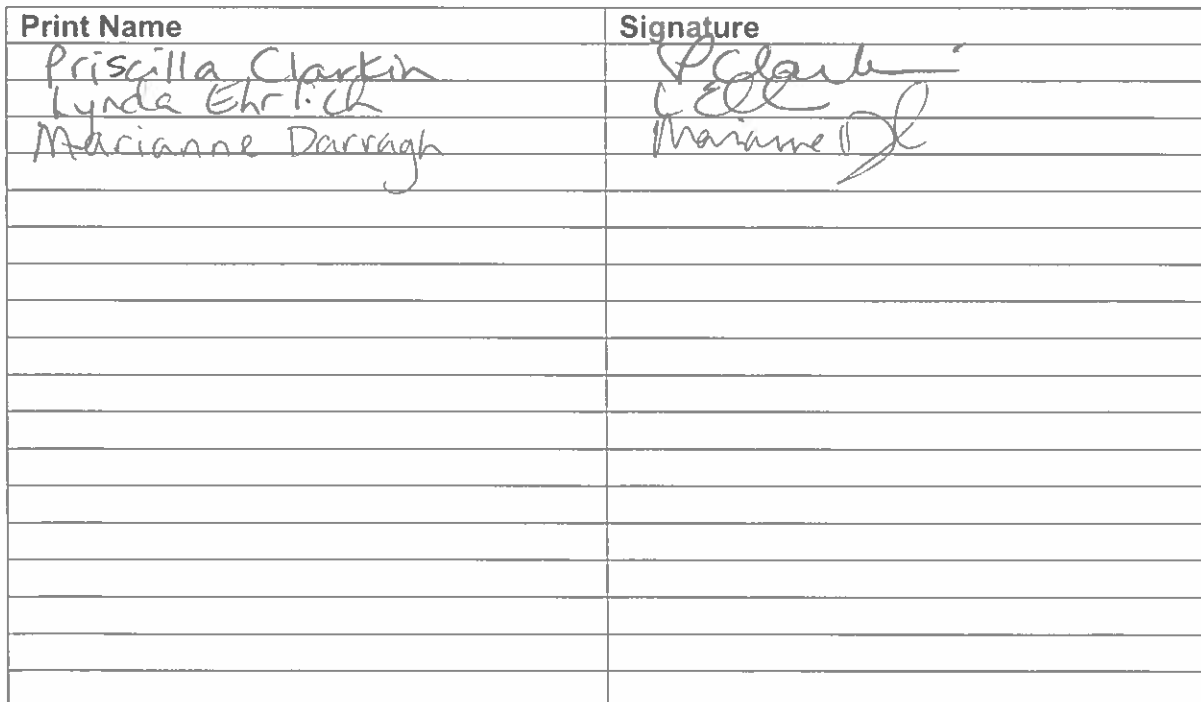 Print Name Signature
Priscilla Clarkin P Clarki
Lynda Ehrlich
Marianne Darragh Marianne